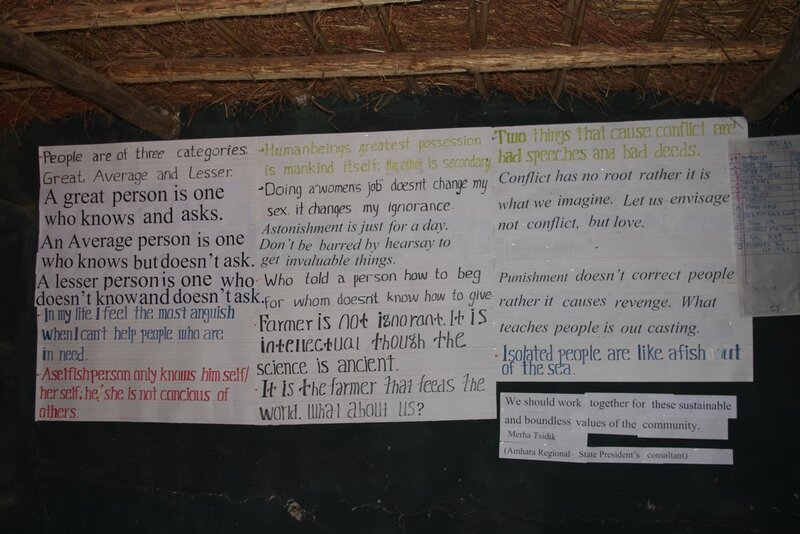 People are of three categories.
Great, Average and Lesser.
A great person is one
who knows and asks.
An Average person is one
who knows but doesn't ask.
A lesser person is one who
doesn't know and doesn't ask.
In my life I feel the most anguish
when I can't help people who are
in need.
A selfish person only knows him self/
her self; he/ she is not concious of
others.
Humanbeings greatest possession
is mankind itself; the other is secondary.
Doing a womens job doesn't change my
sex. it changes my ignorance.
Astonishment is just for a day.
Don't be barred by hearsay to
get invaluable things.
Who told a person how to beg
for whom doesn't know how to give
Farmer is not ignorant. It is
intellectual though the
science is ancient.
It is the farmer that feeds the
world. What about us?
Two things that cause conflict are
bad speeches and bad deeds.
Conflict has no root rather it is
what we imagine. Let us envisage
not conflict, but love.
Punishment doesn't correct people
rather it causes revenge. What
teaches people is out casting.
Isolated people are like a fish out
of the sea.
We should work together for these sustainable
and boundless values of the community.
Merha Tsidik
(Amhara Regional State President's consaltant)